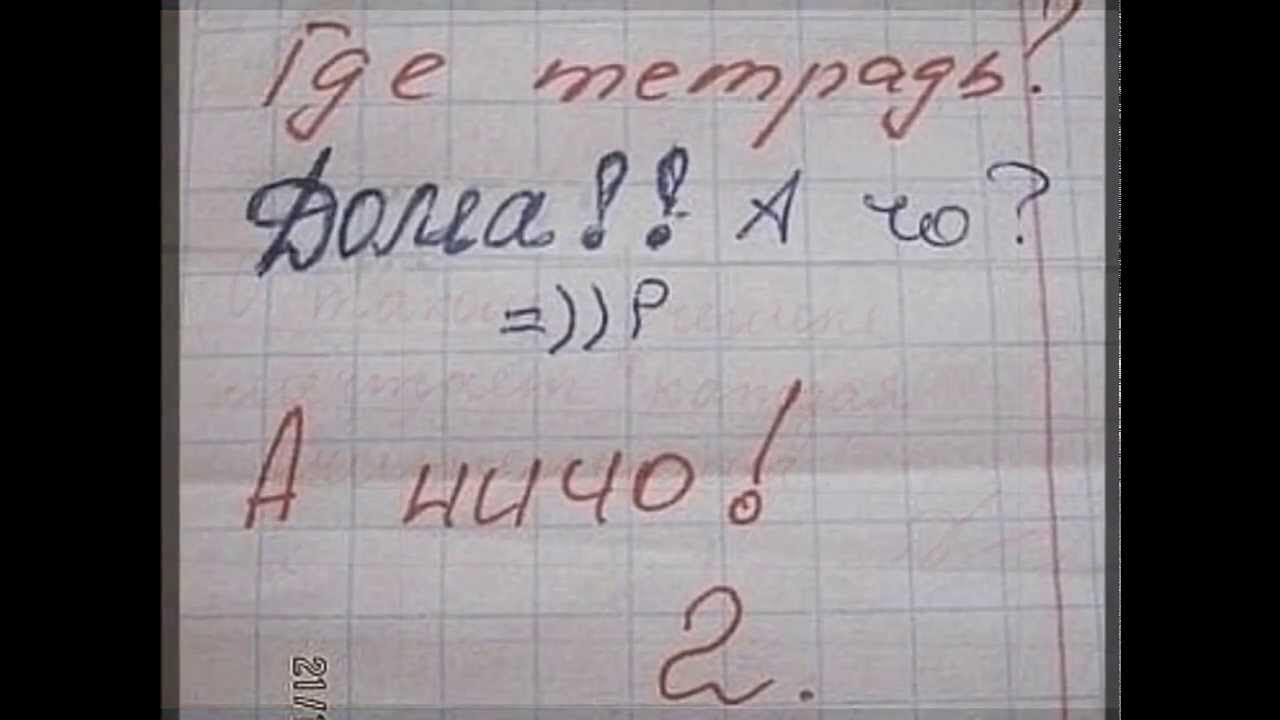 Где тетрадь?
Дома!! А чо?
=))P
А ничо!
2.
21/